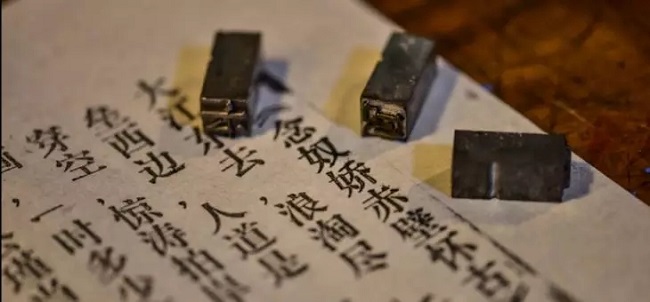 念奴娇赤壁怀古
大江东去，浪淘尽
垒西边，人道是
穿空，惊涛拍岸
画，一时多少
瑾当